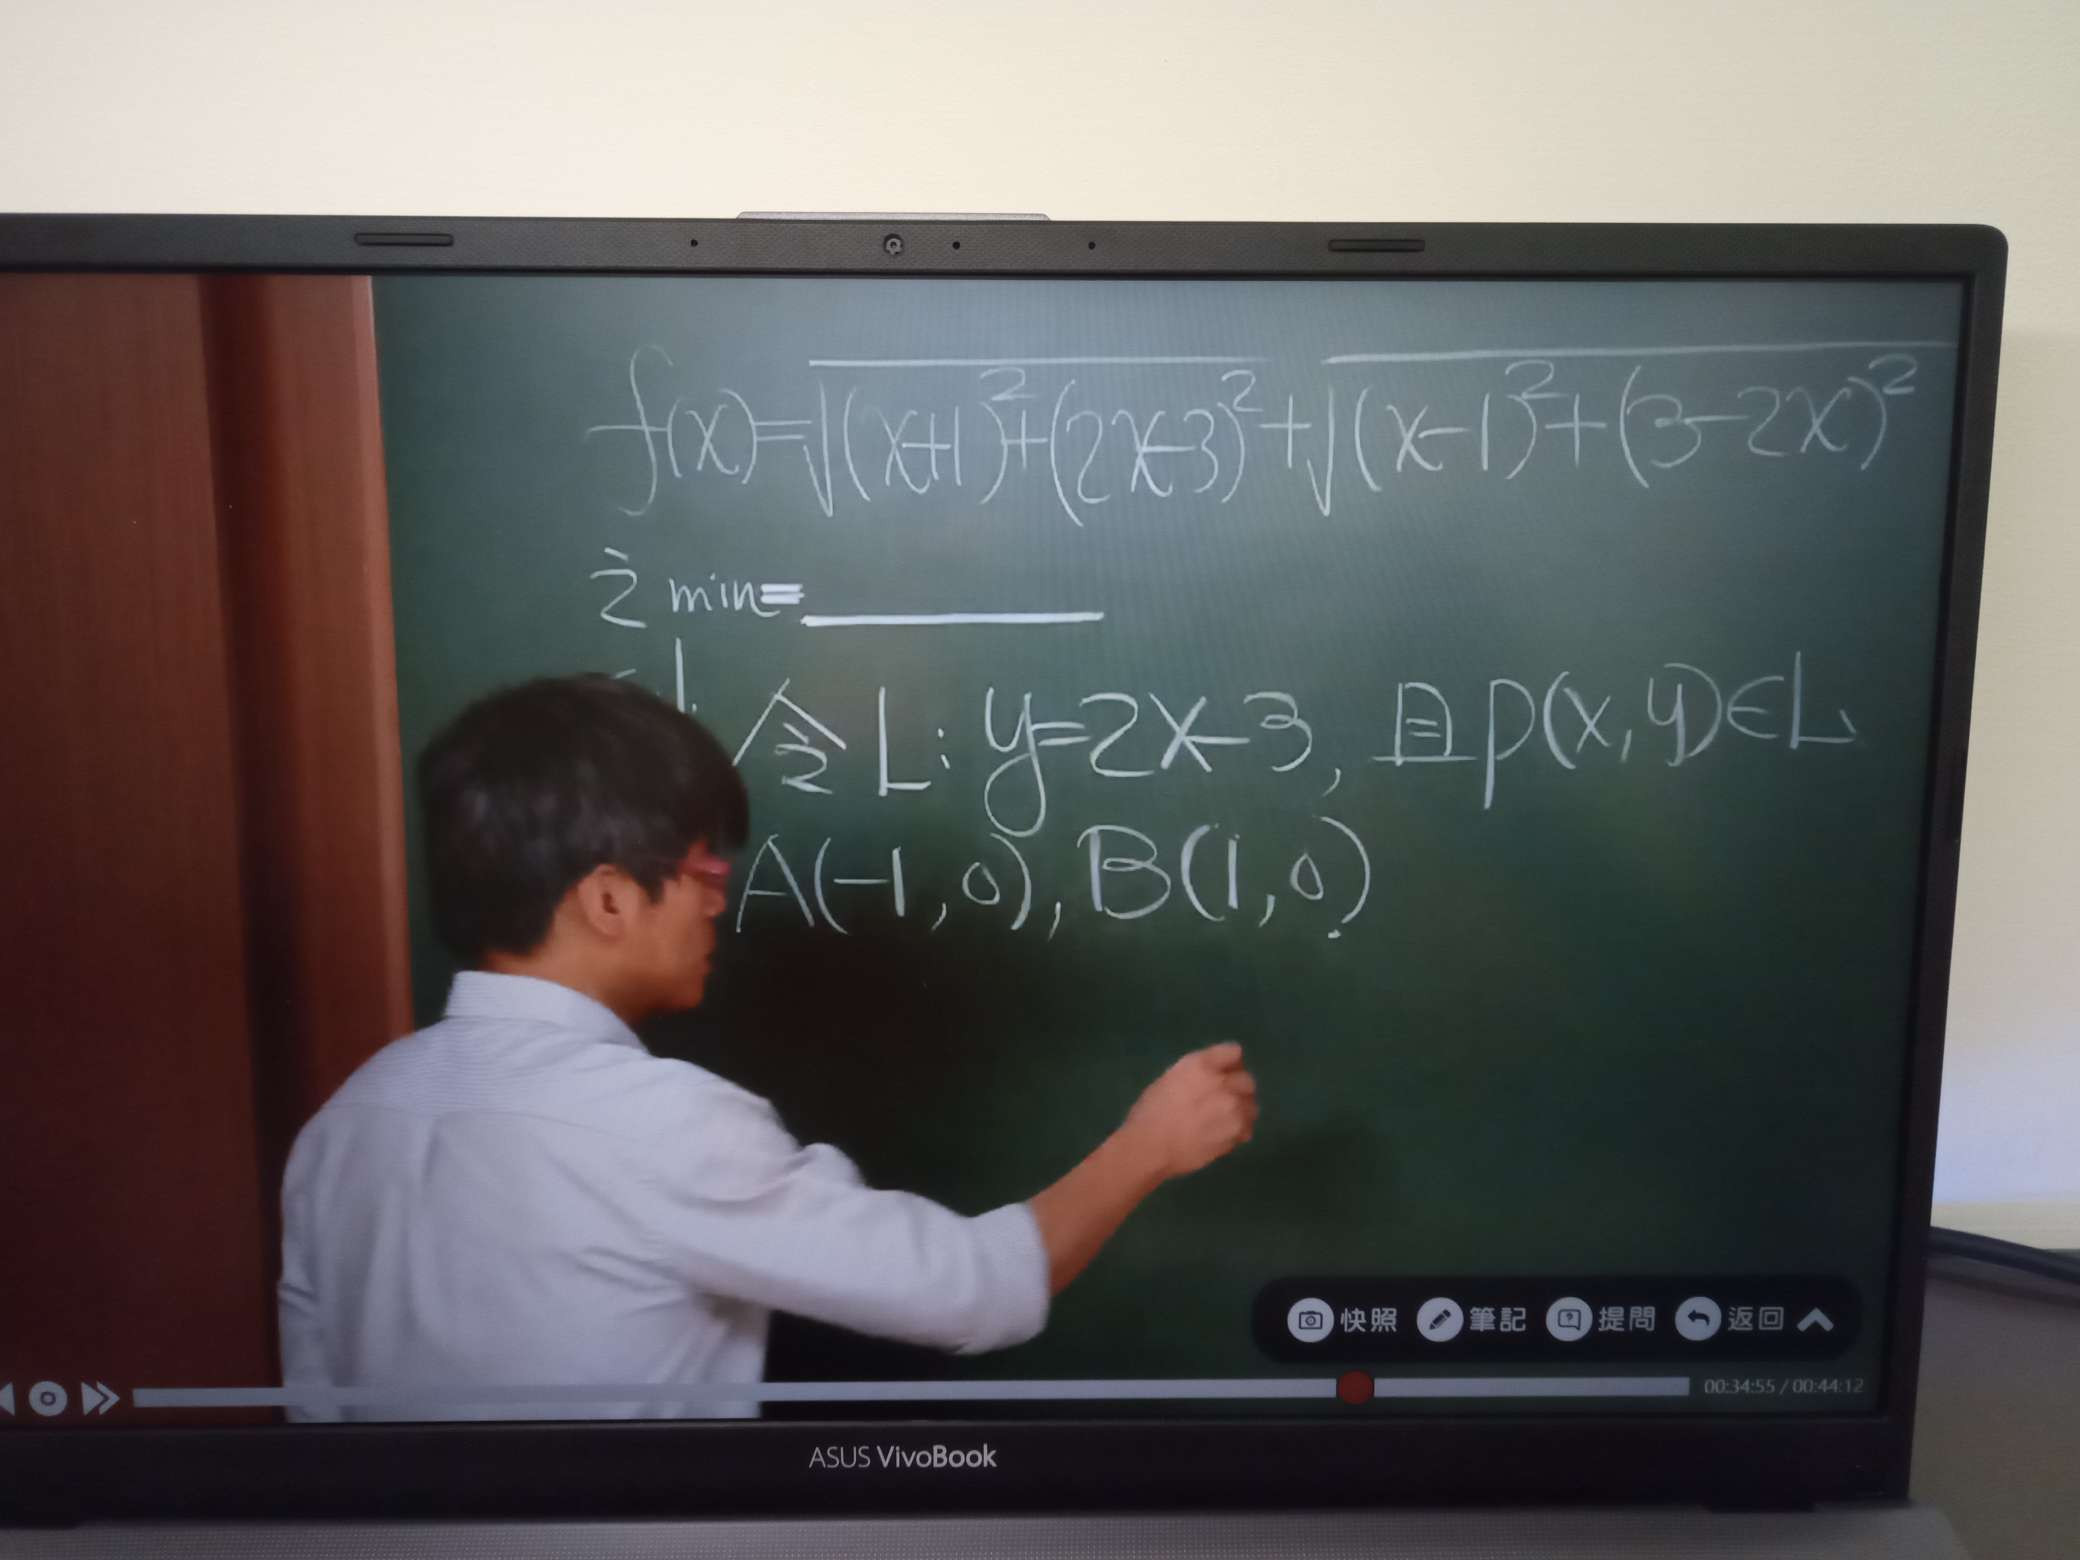 f(x)=√(x+1)²+(2x-3)²+√(x-1)²+(3-2x)²
之 min=
令 L: y=2x-3, 且 P(x,y)∈L
A(-1,0), B(1,0)
快照 筆記 提問 返回
00:34:55 / 00:44:12
ASUS VivoBook